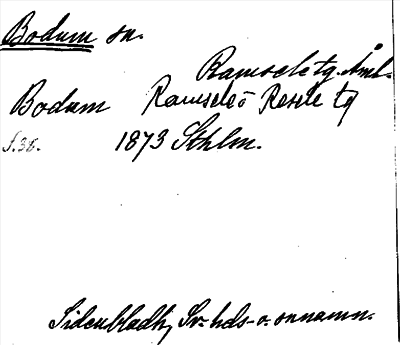 Bodum sn.
Ramsele tg. Ång.
Bodum Ramsele o Resele tg
s. 38. 1873 Sthlm.
Sidenbladh, Sv. hds- o. snnamn.